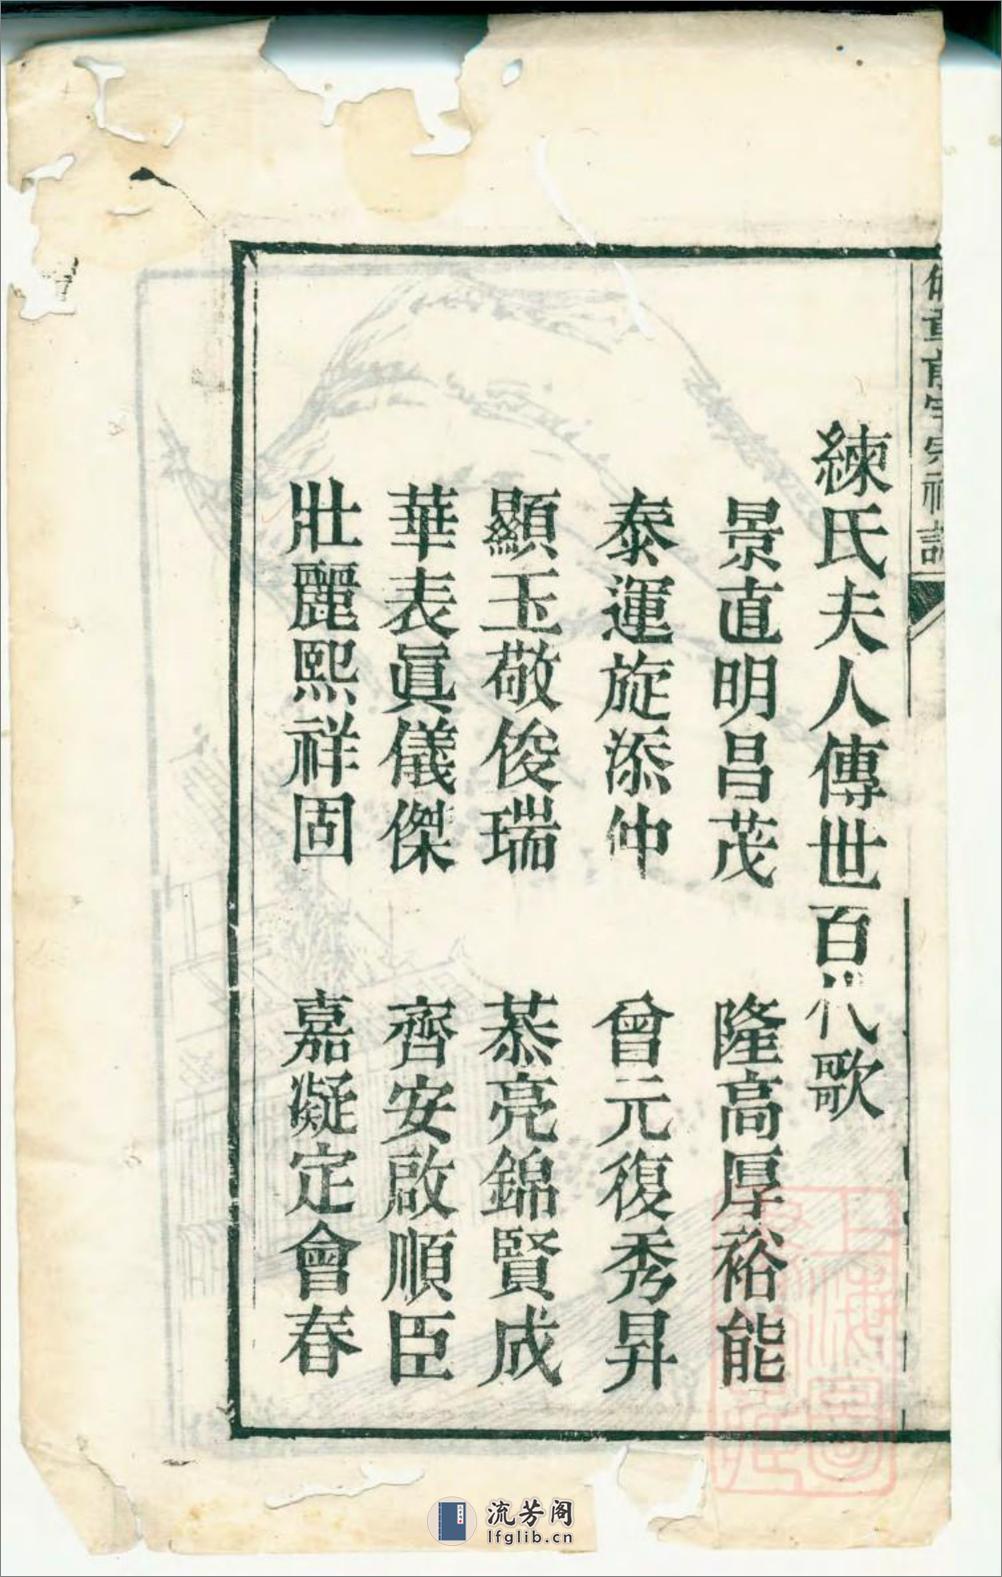 練氏夫人傳世百代歌
景直明昌茂　隆高厚裕能
泰運旋添仲　曾元復秀昇
顯玉敬俊瑞　恭亮錦賢成
華表眞儀傑　齊安啟順臣
壯麗熙祥固　嘉凝定會春
流芳阁
lfglib.cn